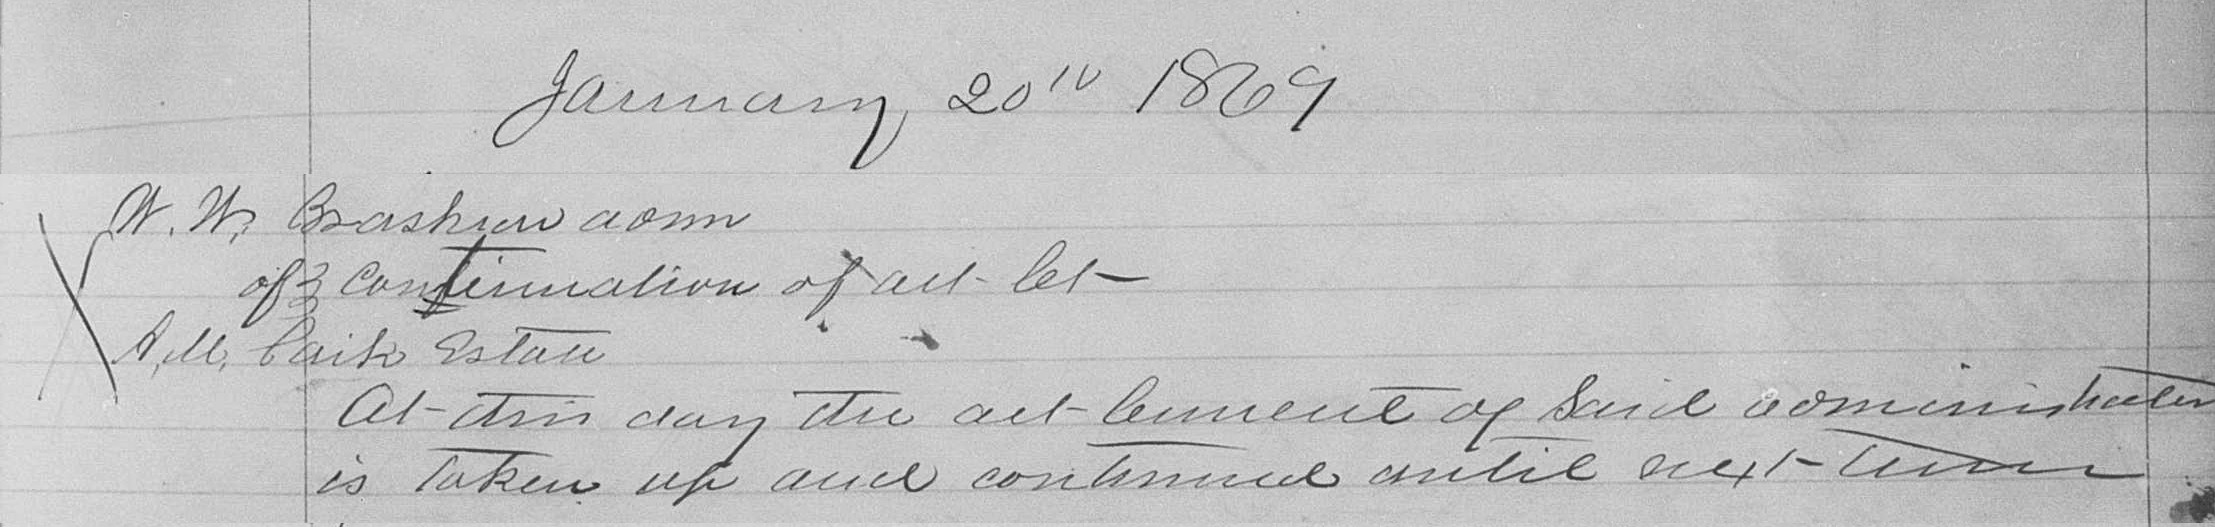 January 20th 1869
W. W. Brashear admr
of } Confirmation of act Cet
A. M. Estate
At this day the act Current of Said administrator
is taken up and continued until next term